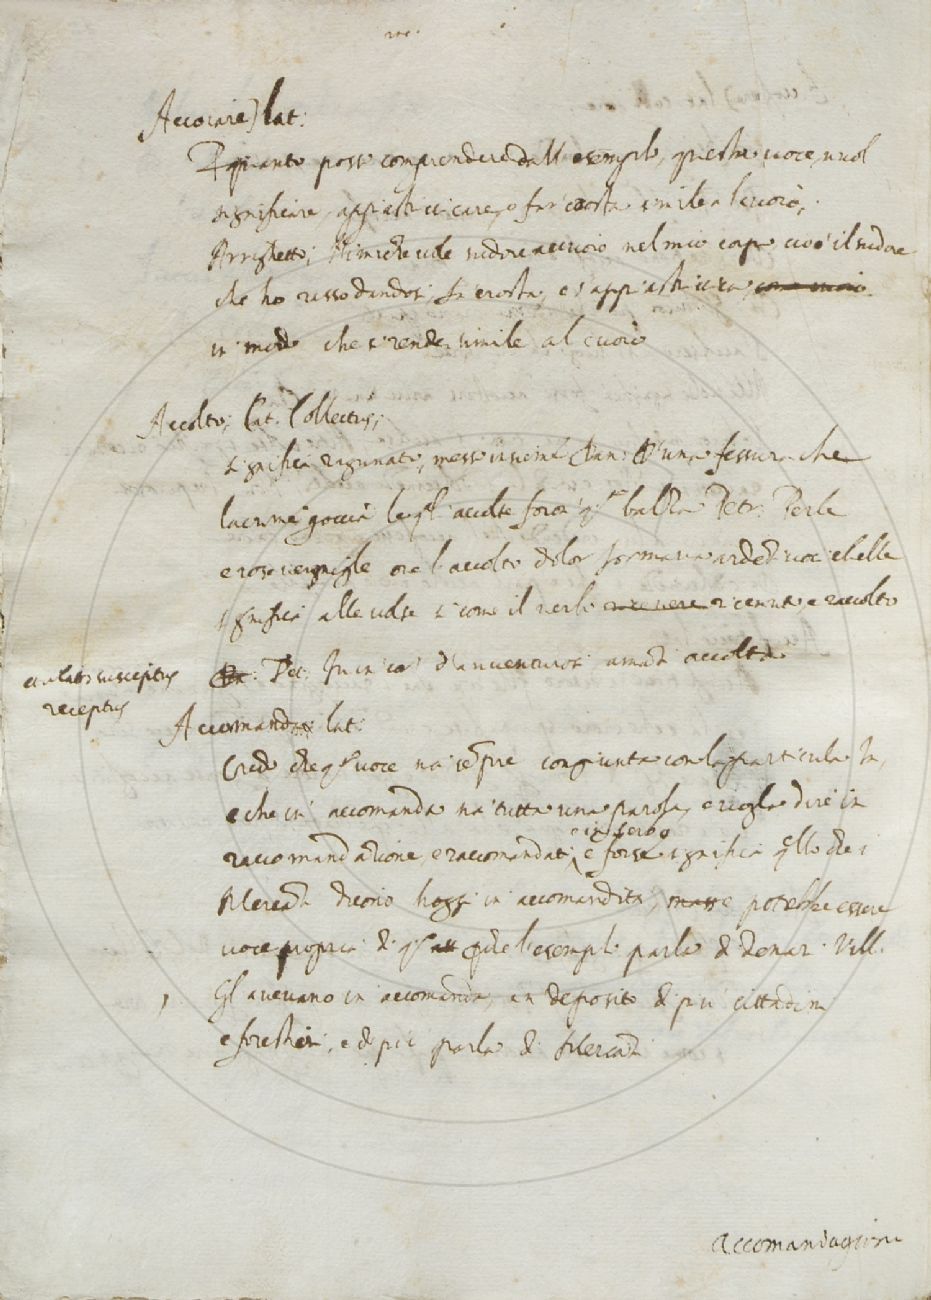 Accoiare) lat:
Per quanto posso comprendere dall esempio, questa voce, vuol
significare, appiastricciare, o far crosta simile a l cuoio,
Arrighetto; sudore accuoio nel mio corpo cioè il sudore
che ho rassodandosi, fa crosta, e s'appiastriccia, come cuoio
in modo che si rende simile al cuoio
Accolto; Lat. Collectus;
significa ragunato, messo insieme Dan: D'una fessura che
lacrime goccia le accolte foran balza Petr: Perle
e rose vermiglie ove l'accolto dolor formava ardenti voci e belle
significa alle volte sì come il verbo ricevere ricevuto, e raccolto
cu lat: susceptus
receptus
Pet: d'avventurosi amanti accolta
Accomanda lat:
Credo che questa voce va sempre congiunta con la particula In,
e che in accomanda va tutta una parola, e voglia dire in
raccomandazione, e raccomandati, e forse significa quello che i
e in serbo
Mercanti dicono hoggi in accomandita, potrebbe essere
voce propria di l'esempio parla di denari Vill:
Gl avevano in accomanda, e in deposito di più cittadini
e forestieri, e di più parla di Mercanti
accomandagione